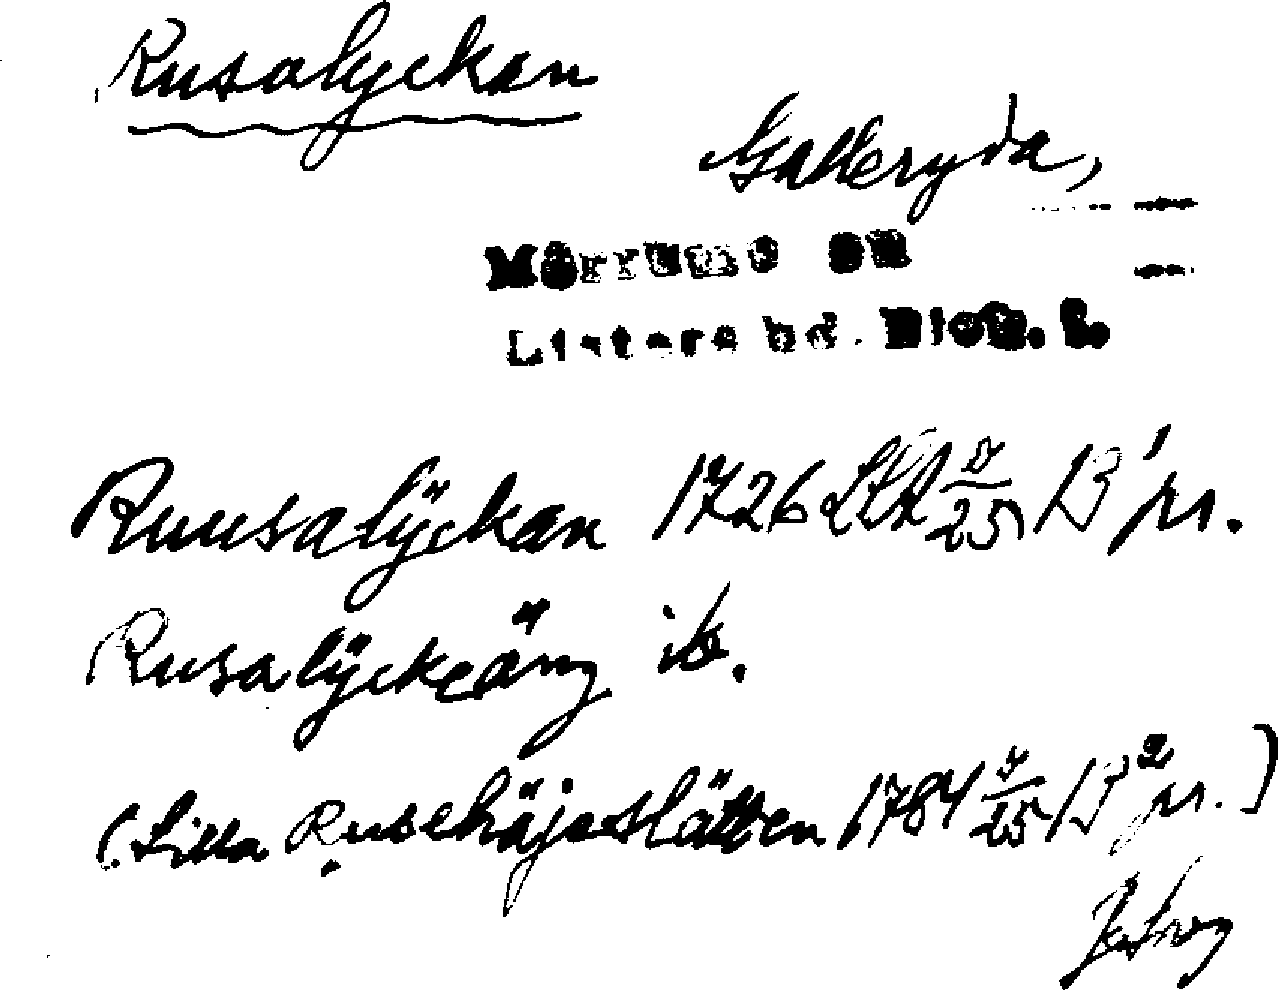 Rusalyckan
Galleryda,
Mörrums sn
Listers hd. Blek. l.
Ruusalÿckan 1726 LSA 25 B1 pr.
Rusalÿckeäng ib.
(Lilla Rusehäjeslätten 1784 25 B2 pr.)